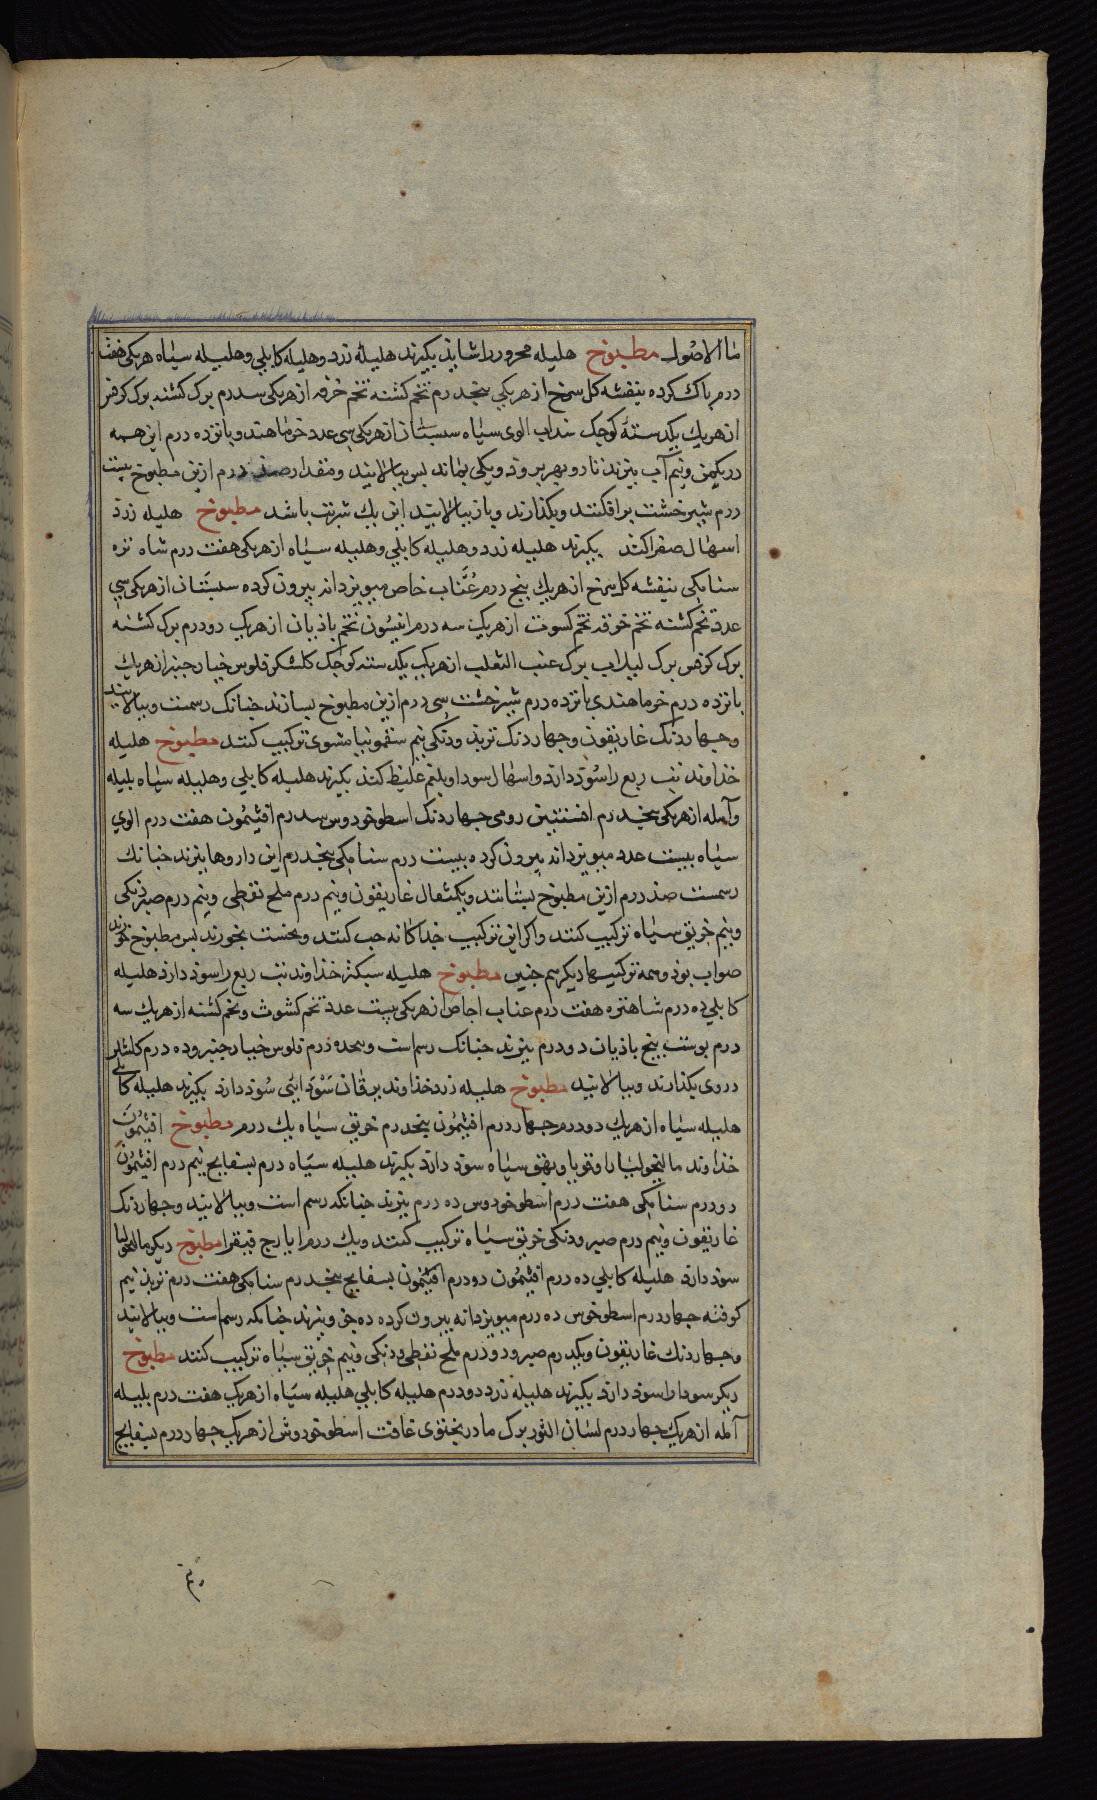 ماالاصول مطبوخ هلیله محرور را شاید بکیرند هلیلهٔ زرد و هلیلهٔ کابلی و هلیله سیاه هریکی هفت
درم پاک کرده بنفشه کل سرخ از هریکی پنجدرم تخم کشنه تخم خرفه از هریکی سدرم برک کشنه برک کرفس
از هریک یکدستهٔ کوچک سداب الوی سیاه سبستان از هریکی سی عدد خرما هندو پانزده درم این همه
در یکمن ونیم آب بپزند تا دو بهر برود و یکی بماند پس بپالایند ومقدار صد درم ازین مطبوخ بیست
درم شیرخشت برافکنند وبکذارند وباز بپالایند این یک شربت باشد مطبوخ هلیله زرد
اسهال صفرا کند بکیرند هلیله زرد و هلیله کابلی و هلیله سیاه از هریکی هفت درم شاه تره
سنامکی بنفشه کل سرخ از هریک پنج درم عُنّاب خاص میویز دانه بیرون کرده سبستان از هریکی سی
عدد تخم کشنه تخم خرفه تخم کسوت از هریک سه درم انیسون تخم باذیان از هریک دو درم برک کشنه
برک کرفس برک لبلاب برک عنب الثعلب از هریک یکدسته کوچک کلشکر فلوس خیارجنبر از هریک
پانزده درم خرما هندی پانزده درم شیرخشت سی درم ازین مطبوخ بسازند چنانک رسمست وبپالایند
وچهاردنک غاریقون وچهاردنک تربذ ودنکی نیم سقمونیا مشوی ترکیب کنند مطبوخ هلیله
خذاوند تب ربع را سُوذ دارد واسهال سودا وبلغم غلیظ کند بکیرند هلیله کابلی وهلیله سیاه بلیله
وآمله از هریکی پنجدرم افسنتین رومی چهاردنک اسطوخودوس سدرم افیثمون هفت درم الوی
سیاه بیست عدد میویز دانه بیرون کرده بیست درم سنامکی پنجدرم این داروها بپزند چنانک
رسمست صذ درم ازین مطبوخ بستانند ویکمثقال غاریقون ونیم درم ملح نفطی ونیم درم صبر دنکی
ونیم خربق سیاه ترکیب کنند واکر این ترکیب جذاکانه حب کنند ونخست بخورند پس مطبوخ خورند
صواب بوذ وهمه ترکیبها دیکر هم چنین مطبوخ هلیله سبکتر خذاوند تب ربع را سوذ دارد هلیله
کابلی ده درم شاهتره هفت درم عناب اجاص از هریکی بیست عدد تخم کشوث وتخم کشنه از هریک سه
درم پوست بیخ باذیان دو درم بپزند چنانک رسم است وهجده درم فلوس خیارجنبر وده درم کلشکر
دروی بکذارند وبپالایند مطبوخ هلیله زرد خذاوند یرقان سَوْدایی سُود دارد بکیرند هلیله کابلی
هلیله سیاه از هریک دو درم چهاردرم افیثمون پنجدرم خربق سیاه یک درم مطبوخ افیثمُون
خذاوند مالیخولیا را وقوبا وبهق سیاه سوذ دارد بکیرند هلیله سیاه درم بسفایج نیم درم افیثمُون
دو درم سنامکی هفت درم اسطوخودوس ده درم بپزند چنانکه رسم است وبپالایند وچهاردنک
غاریقون ونیم درم صبر ودنکی خربق سیاه ترکیب کنند ویک درم ایارج فیقرا مطبوخ دیکر مالیخولیا
سوذ دارد هلیله کابلی ده درم افیثمون دو درم افیثمون بسفایج پنجدرم سنامکی هفت درم تربذ نیم
کوفته چهاردرم اسطوخوس ده درم میویز دانه بیرون کرده ده من وبپزند چنانکه رسم است وبپالایند
وچهاردنک غاریقون ویکدرم صبر ودو درم ملح نفطی ودنکی ونیم خربق سیاه ترکیب کنند مطبوخ
دیکر سودا را سوذ دارد بکیرند هلیله زرد دو درم هلیله کابلی هلیله سیاه از هریک هفت درم بلیله
آمله از هریک چهاردرم لسان الثور برک مادرنجنوی غافت اسطوخودوش از هریک چهاردرم بسفایج